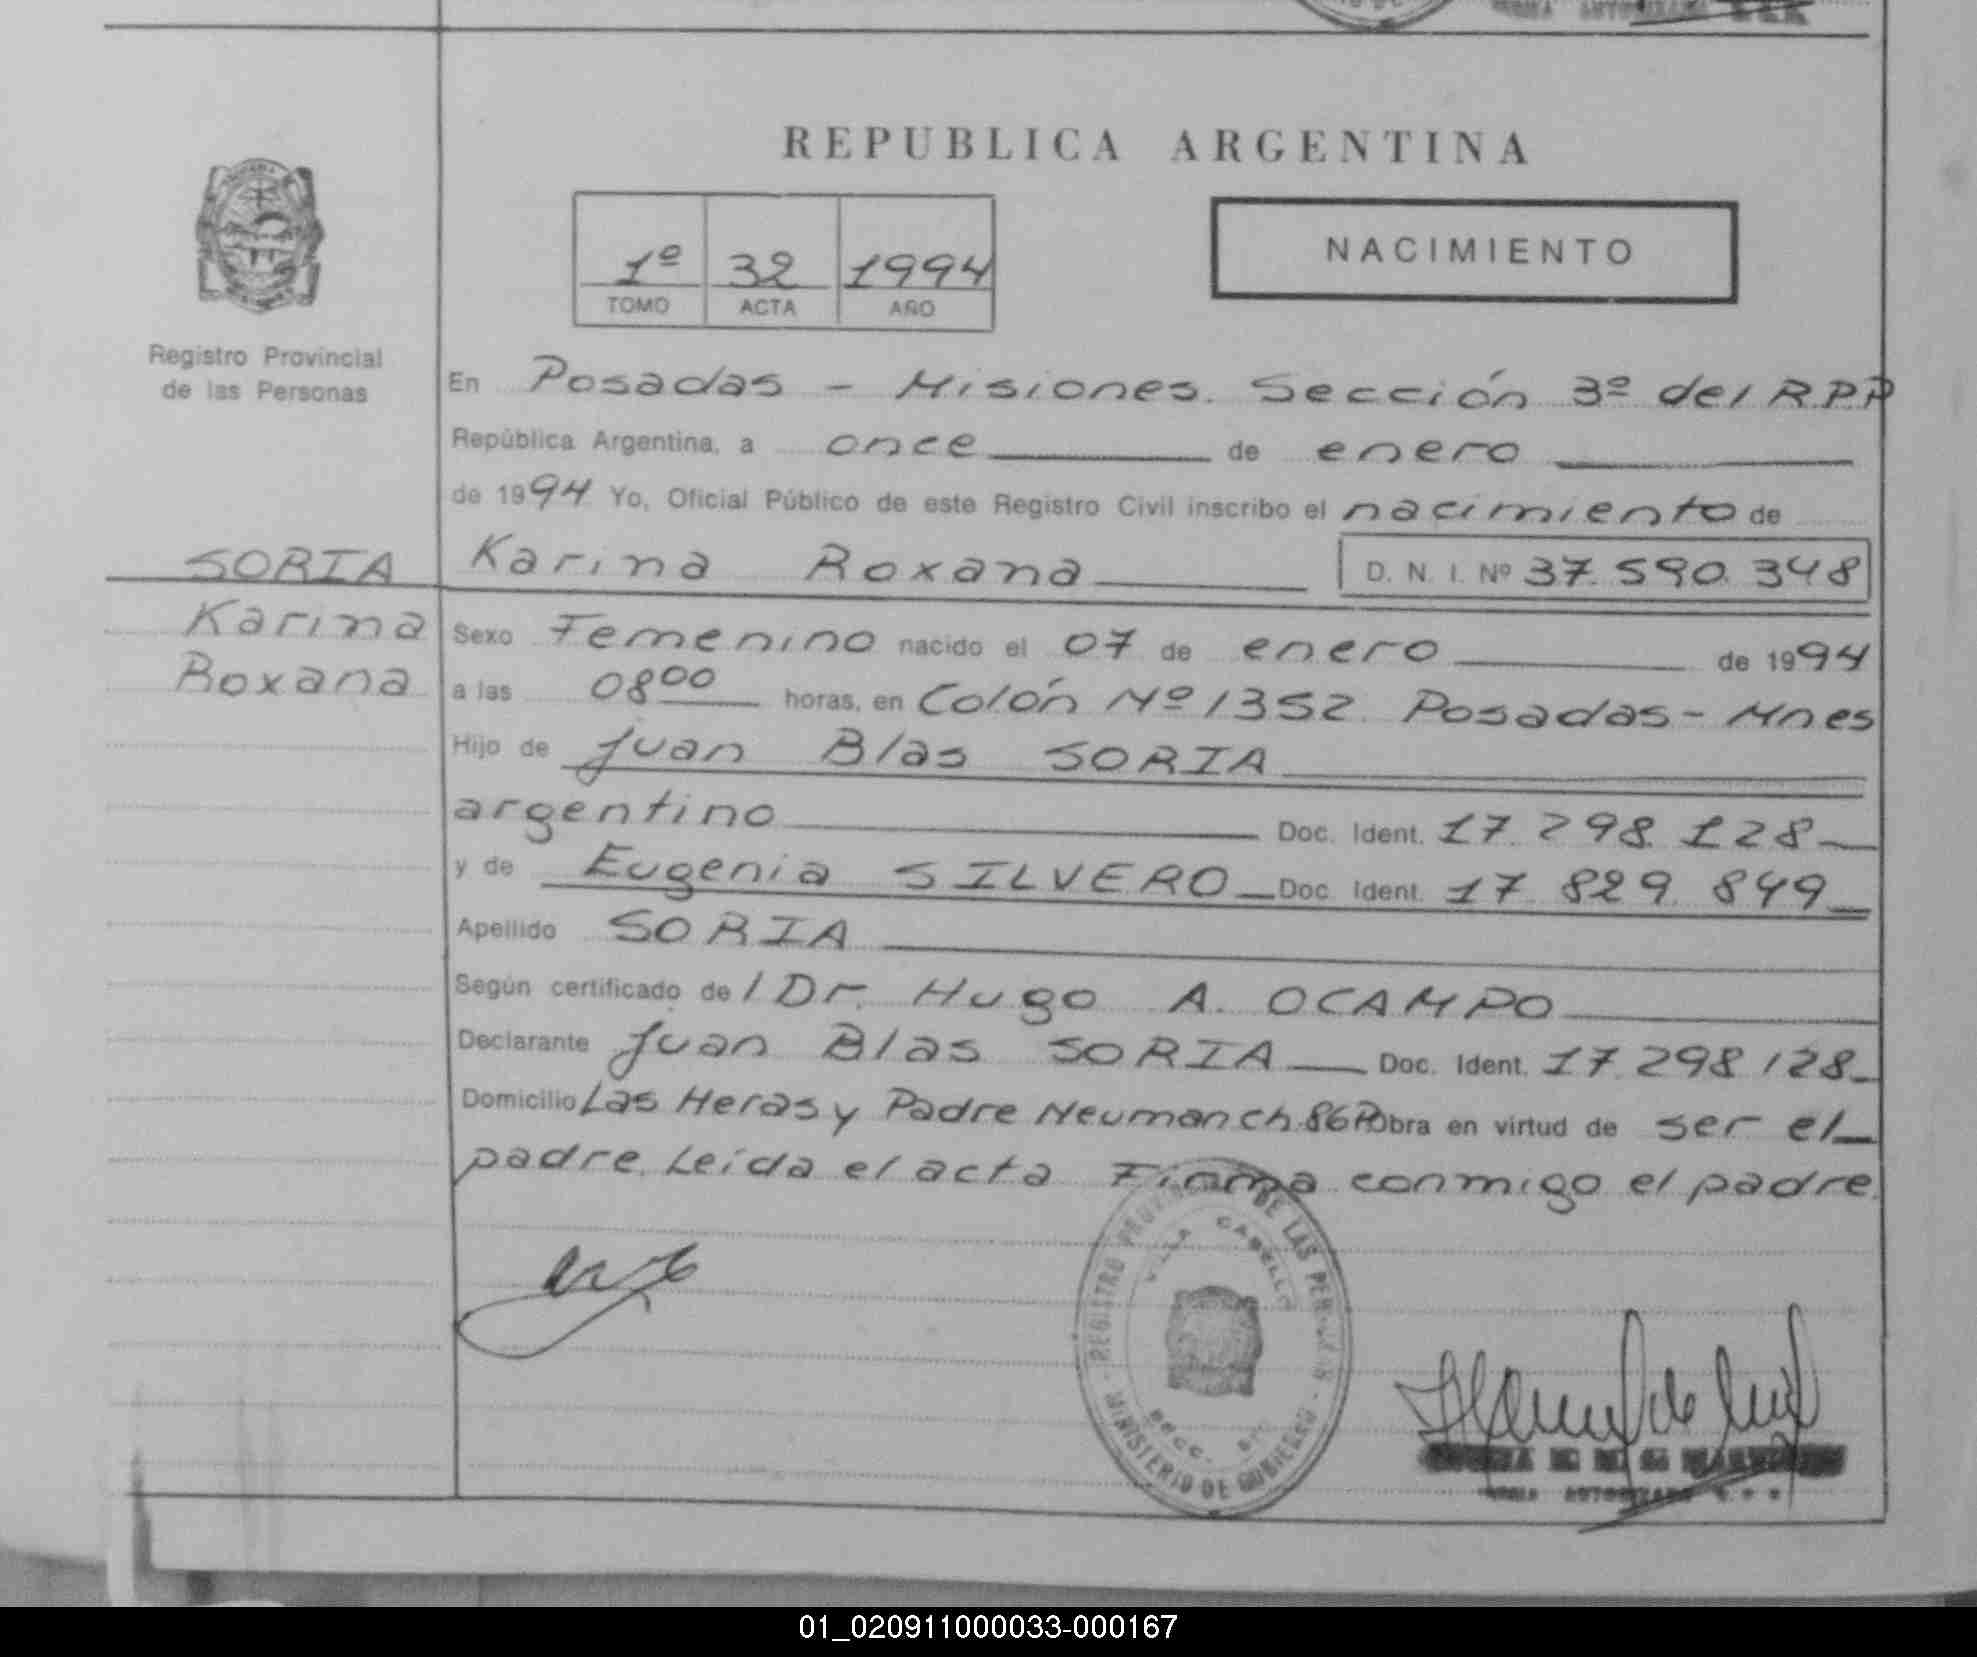 REPUBLICA ARGENTINA
1º 32 1994
TOMO ACTA AÑO
NACIMIENTO
Registro Provincial
de las Personas
En Posadas - Misiones. Sección 3º del R.P.P
República Argentina, a once de enero
de 1994 Yo, Oficial Público de este Registro Civil inscribo el nacimiento de
SORIA
Karina
Roxana
Karina Roxana D. N. I. Nº 37.590.348
Sexo Femenino nacido el 07 de enero de 1994
a las 08⁰⁰ horas, en Colón Nº 1352. Posadas - Mnes
Hijo de Juan Blas SORIA
argentino Doc. Ident. 17.298.128
y de Eugenia SILVERO Doc. Ident. 17.829.849
Apellido SORIA
Según certificado del Dr. Hugo A. OCAMPO
Declarante Juan Blas SORIA Doc. Ident. 17.298.128
Domicilio Las Heras y Padre Neuman ch.86 P. Obra en virtud de ser el
padre. Leída el acta Firma conmigo el padre.
REGISTRO PROVINCIAL DE LAS PERSONAS
VILLA CABELLO
SECC.
MINISTERIO DE GOBIERNO
01_020911000033-000167